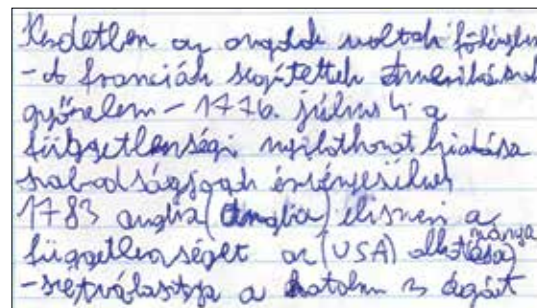 Kezdetben az angolok voltak fölényben
- A franciák segítettek Amerikának
győzelem - 1776. július 4 a
függetlenségi nyilatkozat kiadása
szabadságjogok érvényesülnek
1783 anglia (Anglia) elismeri a
függetlenséget az (USA) alkotmánya
- szétválasztja a hatalmi 3 ágát